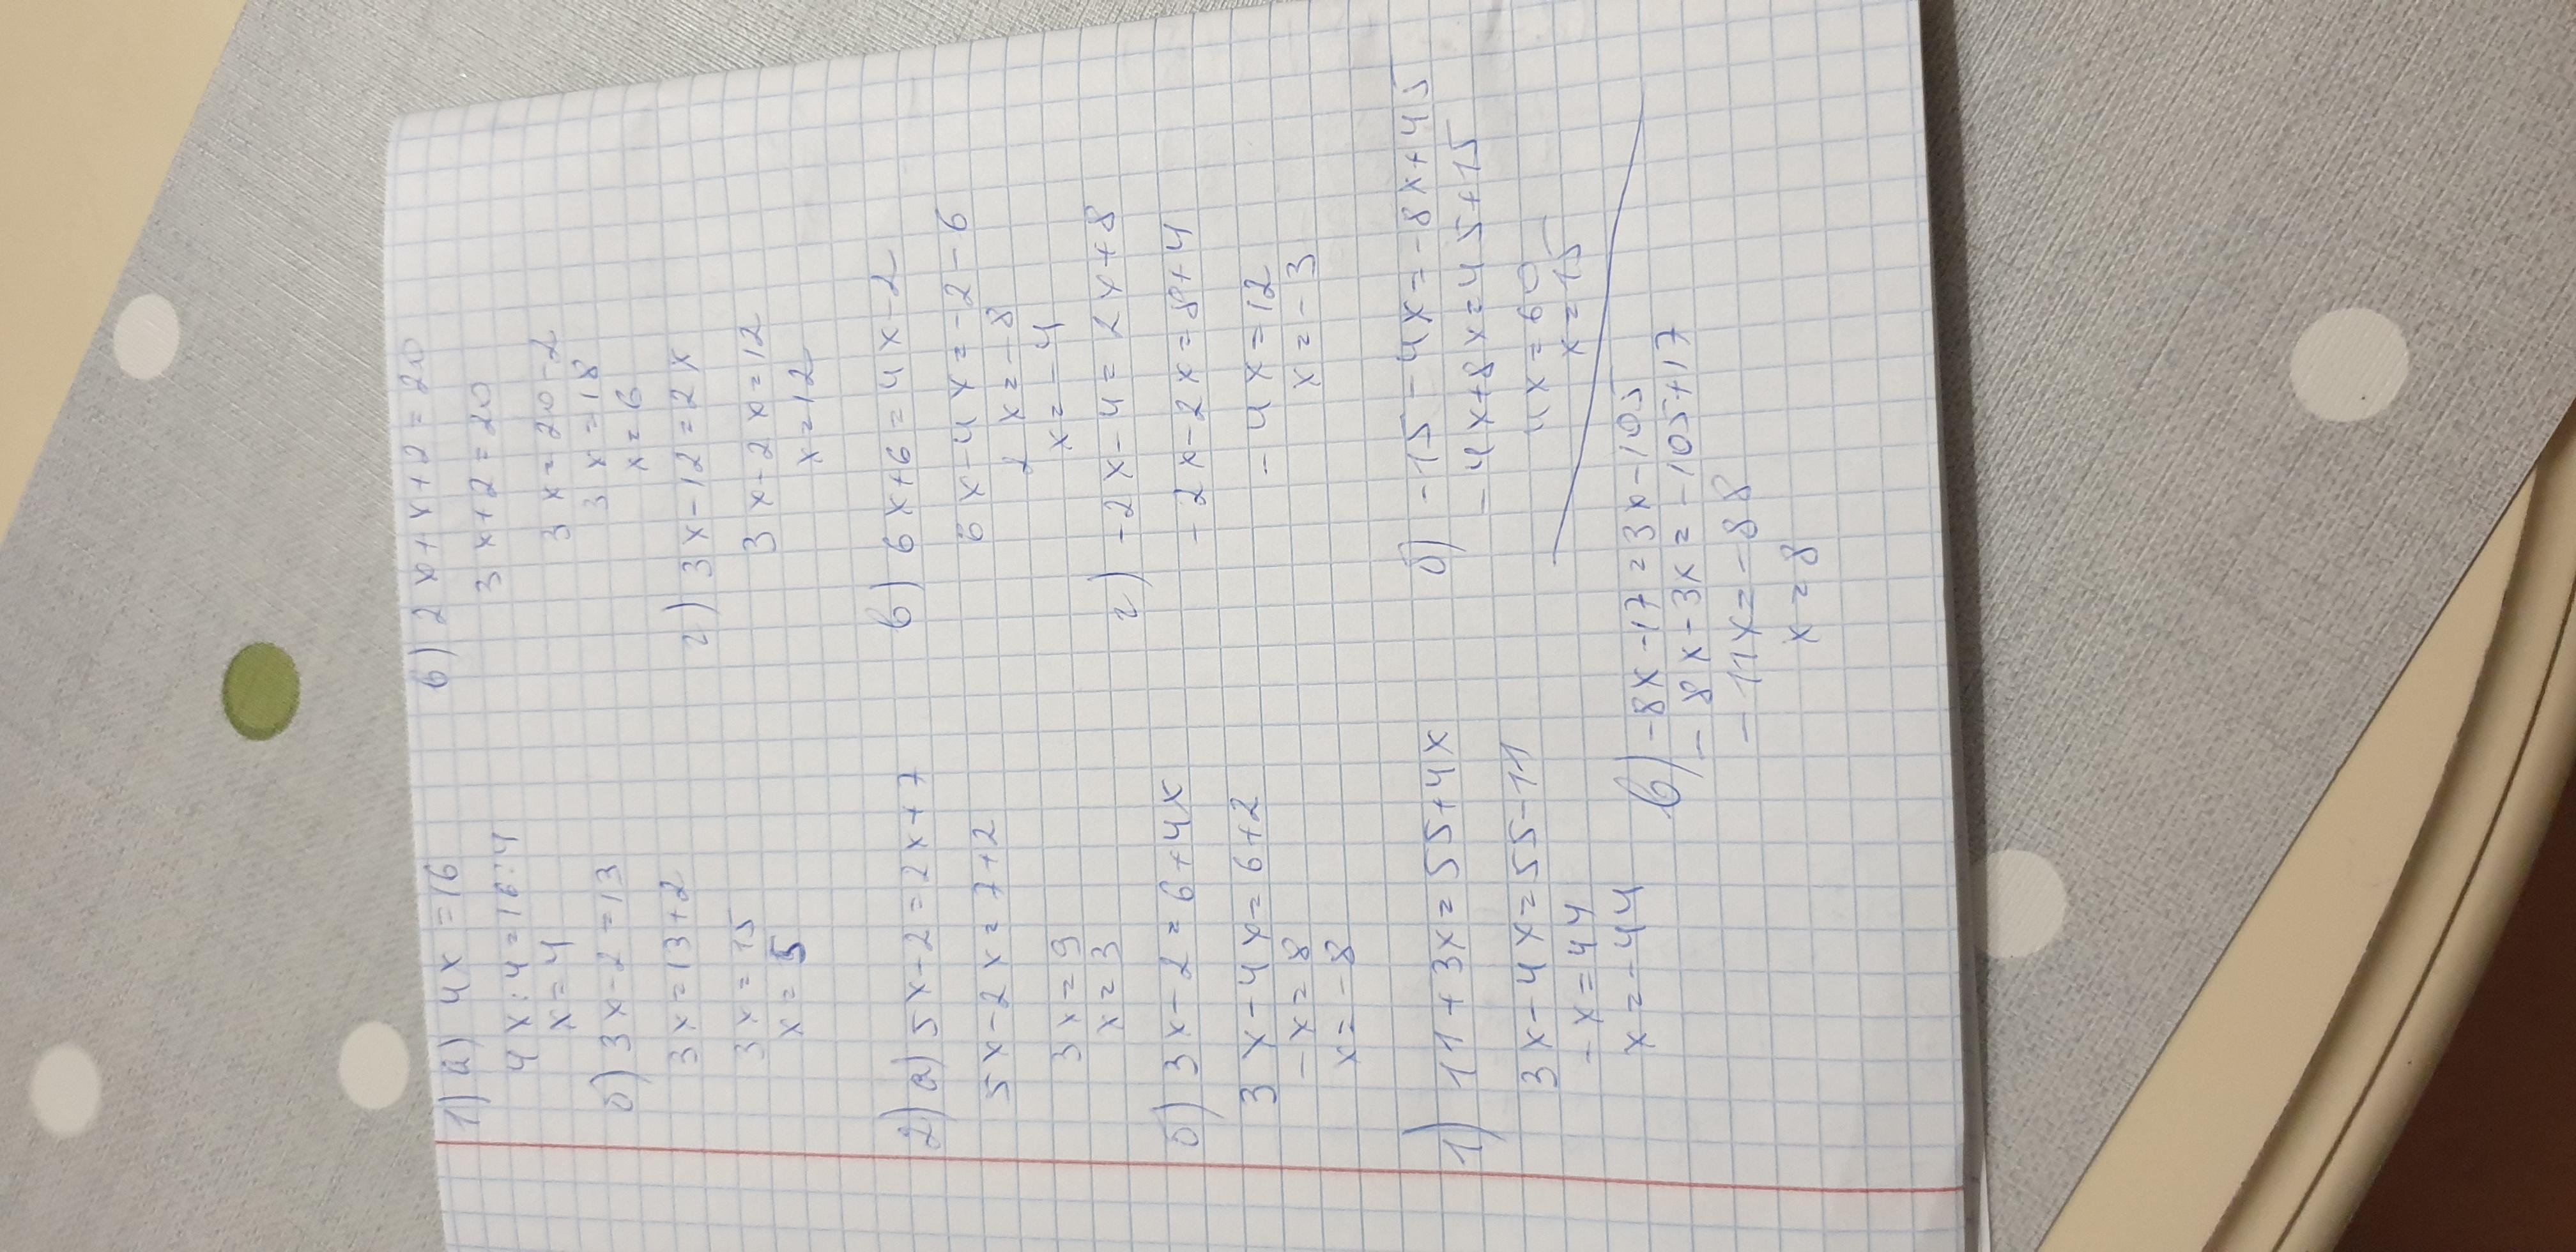 1) а) 4x = 16
4x : 4 = 16 : 4
x = 4
б) 3x - 2 = 13
3x = 13 + 2
3x = 15
x = 5
в) 2x + x + 2 = 20
3x + 2 = 20
3x = 20 - 2
3x = 18
x = 6
г) 3x - 12 = 2x
3x - 2x = 12
x = 12
2) а) 5x - 2 = 2x + 7
5x - 2x = 7 + 2
3x = 9
x = 3
б) 3x - 2 = 6 + 4x
3x - 4x = 6 + 2
-x = 8
x = -8
в) 6x + 6 = 4x - 2
6x - 4x = -2 - 6
2x = -8
x = -4
г) -2x - 4 = 2x + 8
-2x - 2x = 8 + 4
-4x = 12
x = -3
1) 11 + 3x = 55 + 4x
3x - 4x = 55 - 11
-x = 44
x = -44
б) -15 - 4x = -8x + 45
-4x + 8x = 45 + 15
4x = 60
x = 15
в) -8x - 17 = 3x - 105
-8x - 3x = -105 + 17
-11x = -88
x = 8